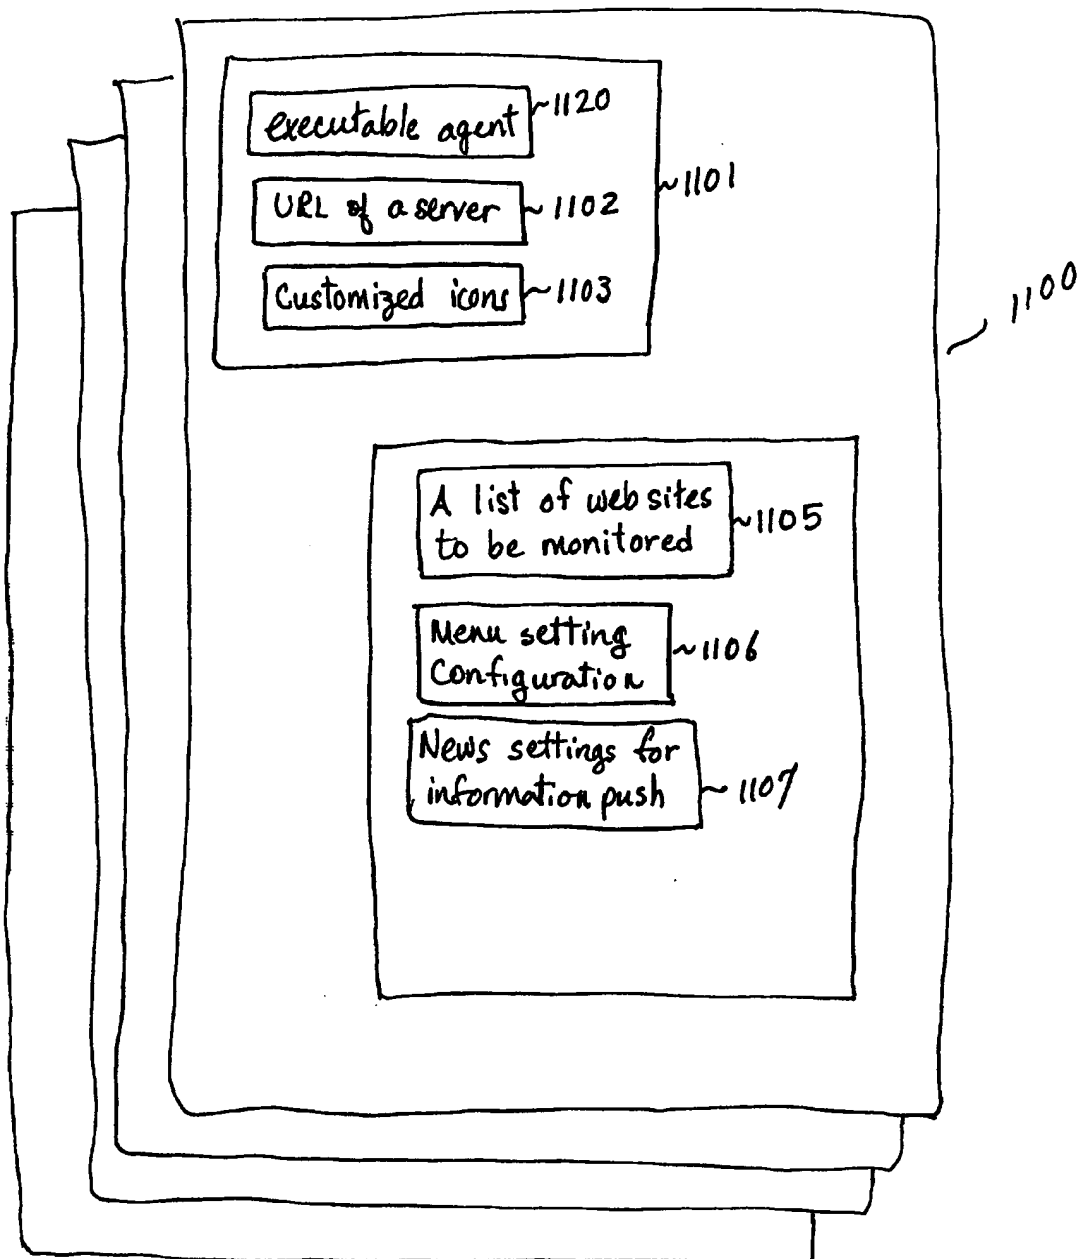 executable agent ~1120
URL of a server ~1102
~1101
Customized icons ~1103
1100
A list of web sites
to be monitored ~1105
Menu setting
Configuration ~1106
News settings for
information push ~1107